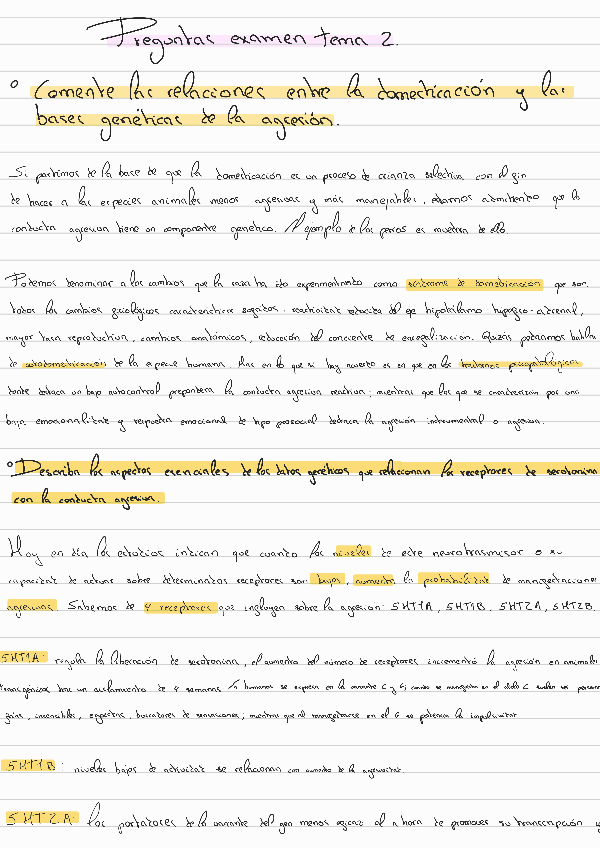 Preguntas examen tema 2.
° Comente las relaciones entre la domesticación y las
bases genéticas de la agresión.
Si partimos de la base de que la domesticación es un proceso de crianza selectiva con el fin
de hacer a las especies animales menos agresivas y más manejables, estamos admitiendo que la
conducta agresiva tiene un componente genético. El ejemplo de los perros es muestra de ello.
Podemos denominar a los cambios que la raza ha ido experimentando como síndrome de domesticación que son
todos los cambios fisiológicos característicos reactividad reducida del eje hipotálamo hipofiso-adrenal,
mayor tasa reproductiva, cambios anatómicos, reducción del cociente de encefalización. Quizás podríamos hablar
de autodomesticación de la especie humana. Mas en lo que si hay acuerdo es en que en los trastornos psicopatológicos
donde destaca un bajo autocontrol prepondera la conducta agresiva reactiva; mientras que los que se caracterizan por una
baja emocionalidad y respuesta emocional de tipo prosocial destaca la agresión instrumental o agresiva.
° Describa los aspectos esenciales de los datos genéticos que relacionan los receptores de serotonina
con la conducta agresiva.
Hoy en día los estudios indican que cuanto los niveles de este neurotrasmisor o su
capacidad de actuar sobre determinados receptores son bajos, aumenta la probabilidad de manifestaciones
agresivas. Sabemos de 4 receptores que influyen sobre la agresión: 5HT1A, 5HT1B, 5HT2A, 5HT2B.
5HT1A: regula la liberación de serotonina, el aumento del número de receptores incrementó la agresión en animales
transgénicos tras un aislamiento de 4 semanas. En humanos se expresa en la variante C y G; cuando se manifiesta en el alelo C suelen ser personas
frías, insensibles, egoístas, buscadores de sensaciones; mientras que al manifestarse en el G se potencia la impulsividad
5HT1B: niveles bajos de actividad se relacionan con aumento de la agresividad.
5HT2A: los portadores de la variante del gen menos eficaz al a hora de promover su transcripción y